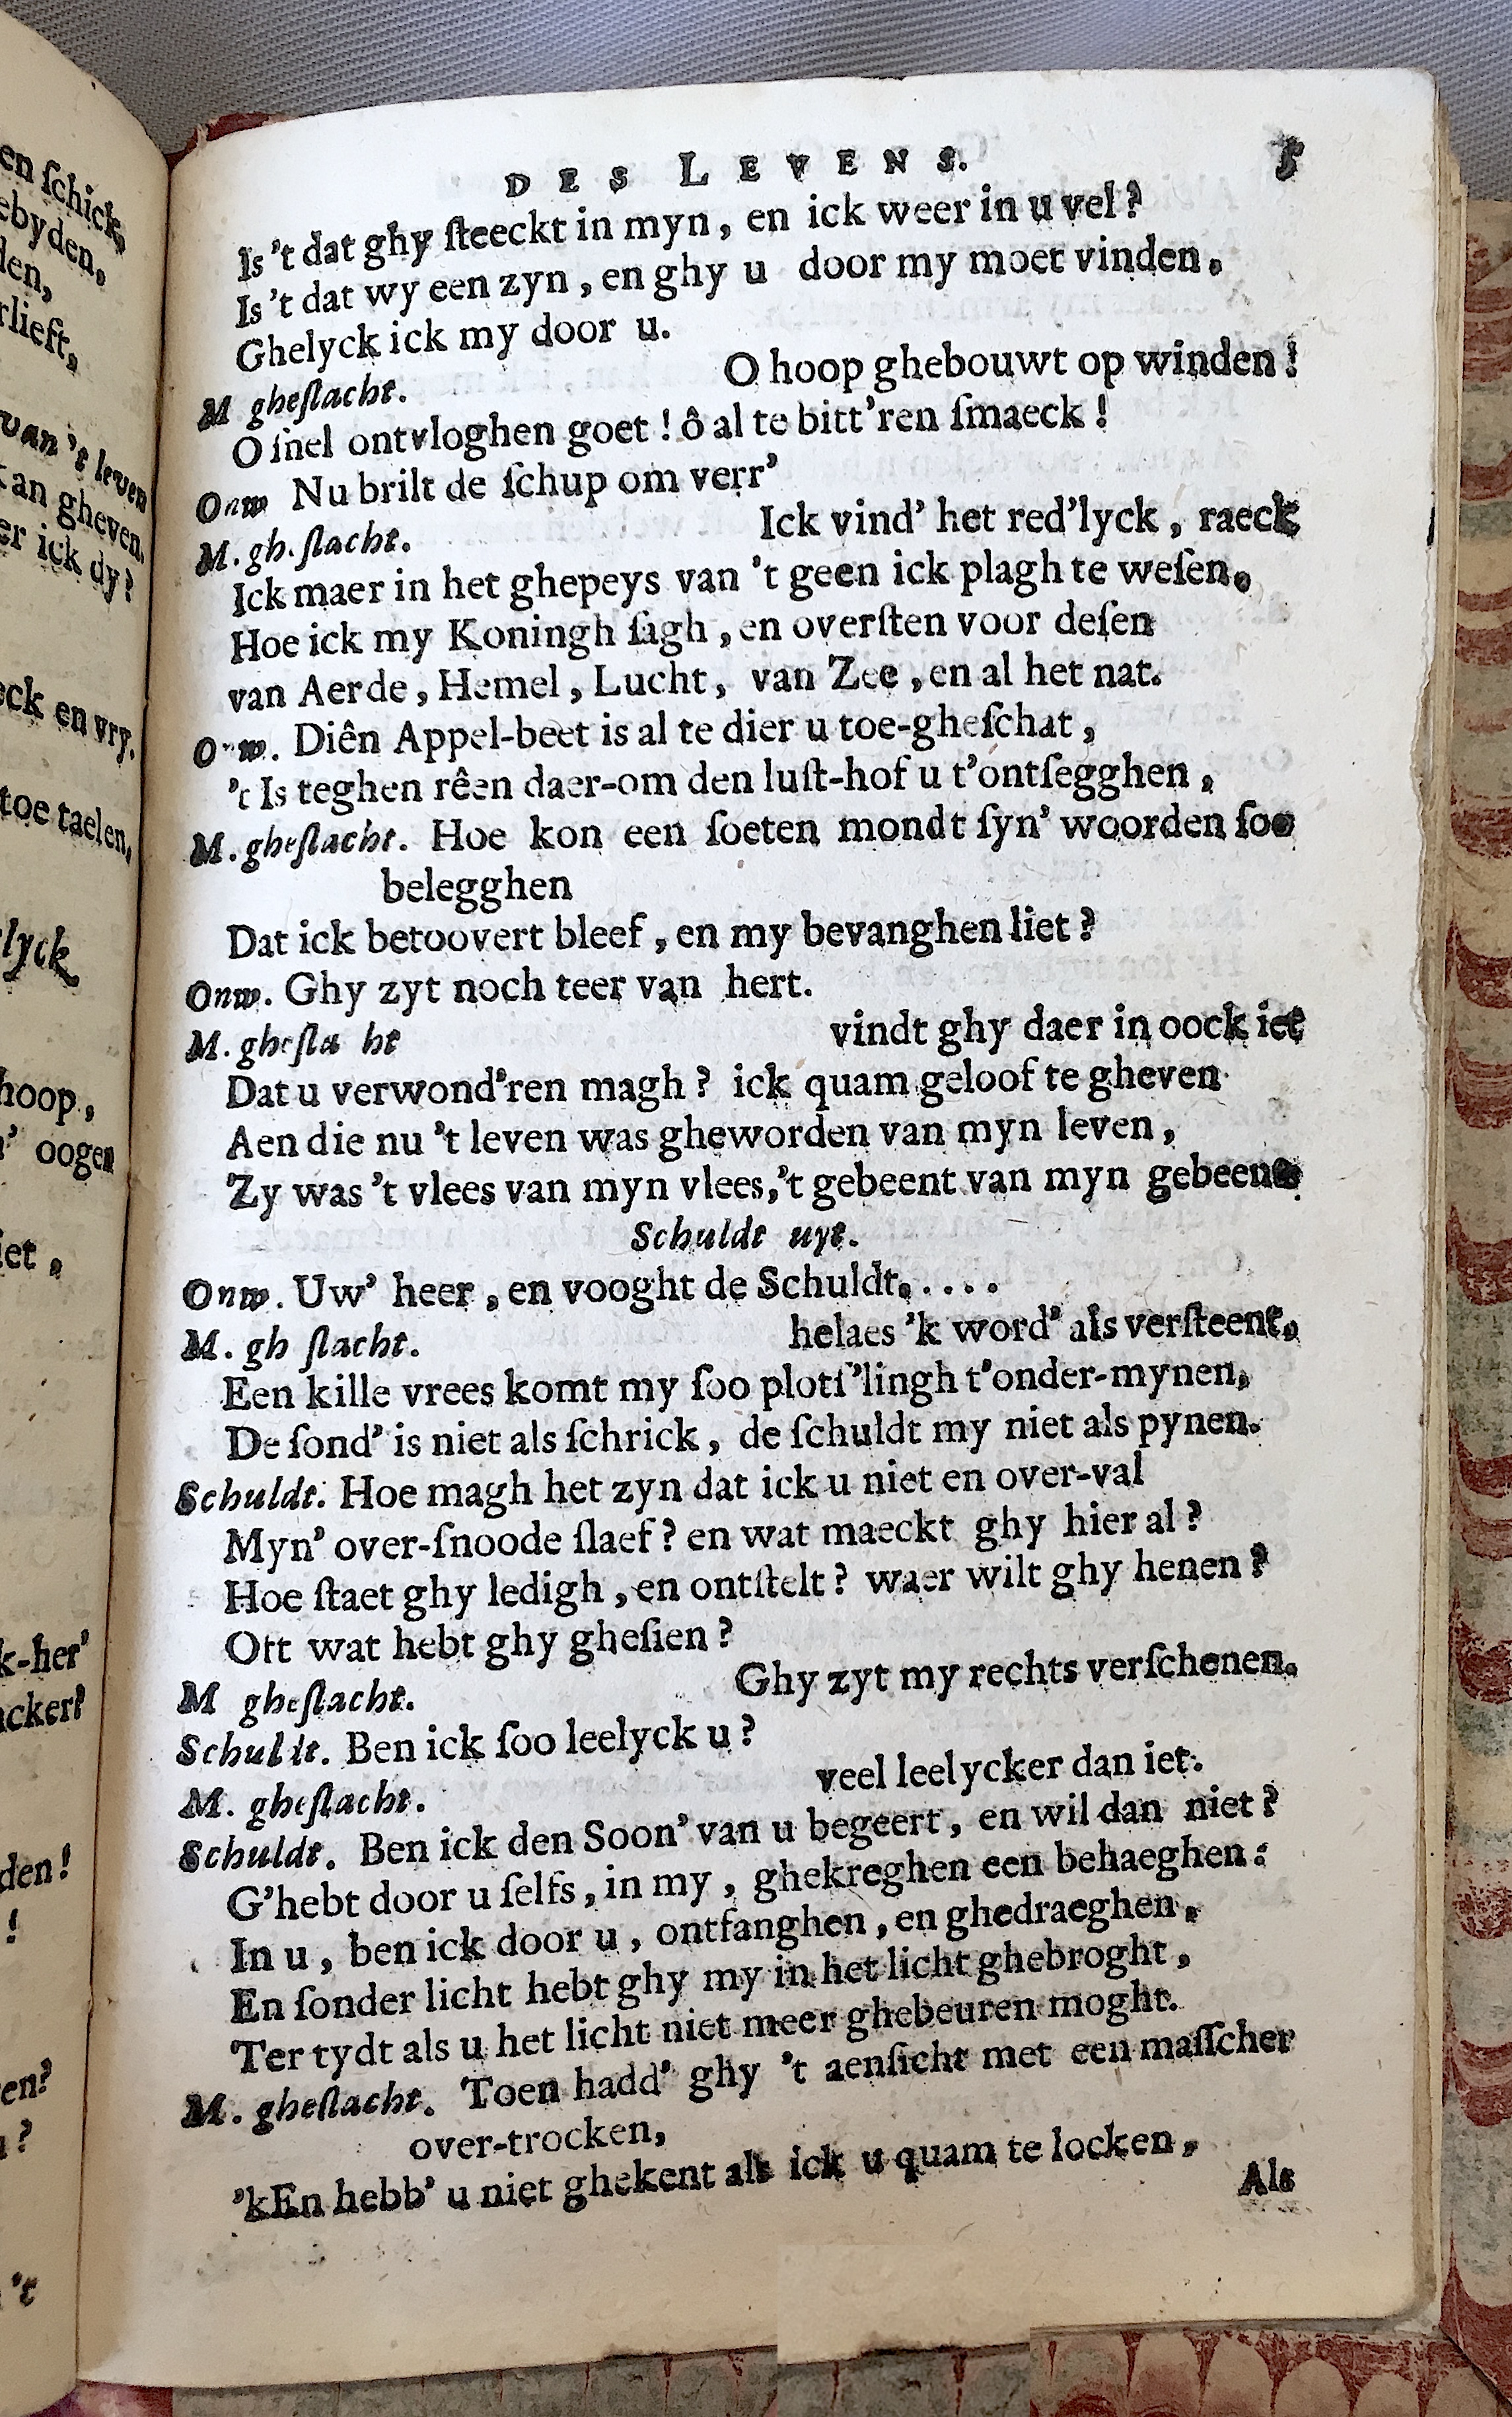 DES LEVENS. 5
Is 't dat ghy ſteeckt in myn, en ick weer in u vel?
Is 't dat wy een zyn, en ghy u door my moet vinden,
Ghelyck ick my door u.
O hoop ghebouwt op winden!
M gheſlacht.
O ſnel ontvloghen goet! ô al te bitt'ren ſmaeck!
Onw Nu brilt de ſchup om verr'
Ick vind' het red'lyck, raeck
M. gh. ſlacht.
Ick maer in het ghepeys van 't geen ick plagh te weſen,
Hoe ick my Koningh ſagh, en overſten voor deſen
van Aerde, Hemel, Lucht, van Zee, en al het nat.
Onw. Diên Appel-beet is al te dier u toe-gheſchat,
't Is teghen rêen daer-om den luſt-hof u t'ontſegghen,
M. gheſlacht. Hoe kon een ſoeten mondt ſyn' woorden ſoo
belegghen
Dat ick betoovert bleef, en my bevanghen liet?
Onw. Ghy zyt noch teer van hert.
vindt ghy daer in oock iet
M. gheſla ht
Dat u verwond'ren magh? ick quam geloof te gheven
Aen die nu 't leven was gheworden van myn leven,
Zy was 't vlees van myn vlees, 't gebeent van myn gebeent
Schuldt uyt.
Onw. Uw' heer, en vooght de Schuldt. ....
helaes 'k word' als verſteent,
M. gh ſlacht.
Een kille vrees komt my ſoo plotſ'lingh t'onder-mynen,
De ſond' is niet als ſchrick, de ſchuldt my niet als pynen.
Schuldt. Hoe magh het zyn dat ick u niet en over-val
Myn' over-ſnoode ſlaef? en wat maeckt ghy hier al?
Hoe ſtaet ghy ledigh, en ontſtelt? waer wilt ghy henen?
Oft wat hebt ghy gheſien?
Ghy zyt my rechts verſchenen.
M gheſlacht.
Schuldt. Ben ick ſoo leelyck u?
veel leelycker dan iet.
M. gheſlacht.
Schuldt. Ben ick den Soon' van u begeert, en wil dan niet?
G'hebt door u ſelfs, in my, ghekreghen een behaeghen:
In u, ben ick door u, ontfanghen, en ghedraeghen,
En ſonder licht hebt ghy my in het licht ghebroght,
Ter tydt als u het licht niet meer ghebeuren moght.
M. gheſlacht. Toen hadd' ghy 't aenſicht met een maſſcher
over-trocken,
'kEn hebb' u niet ghekent als ick u quam te locken,
Als
en ſchick,
ebyden,
den,
rlieft,
van 't leven
kan gheven,
er ick dy?
eck en vry.
toe taelen,
lyck
hoop,
' oogen
iet,
k-her'
acker?
den!
!
en?
?
't